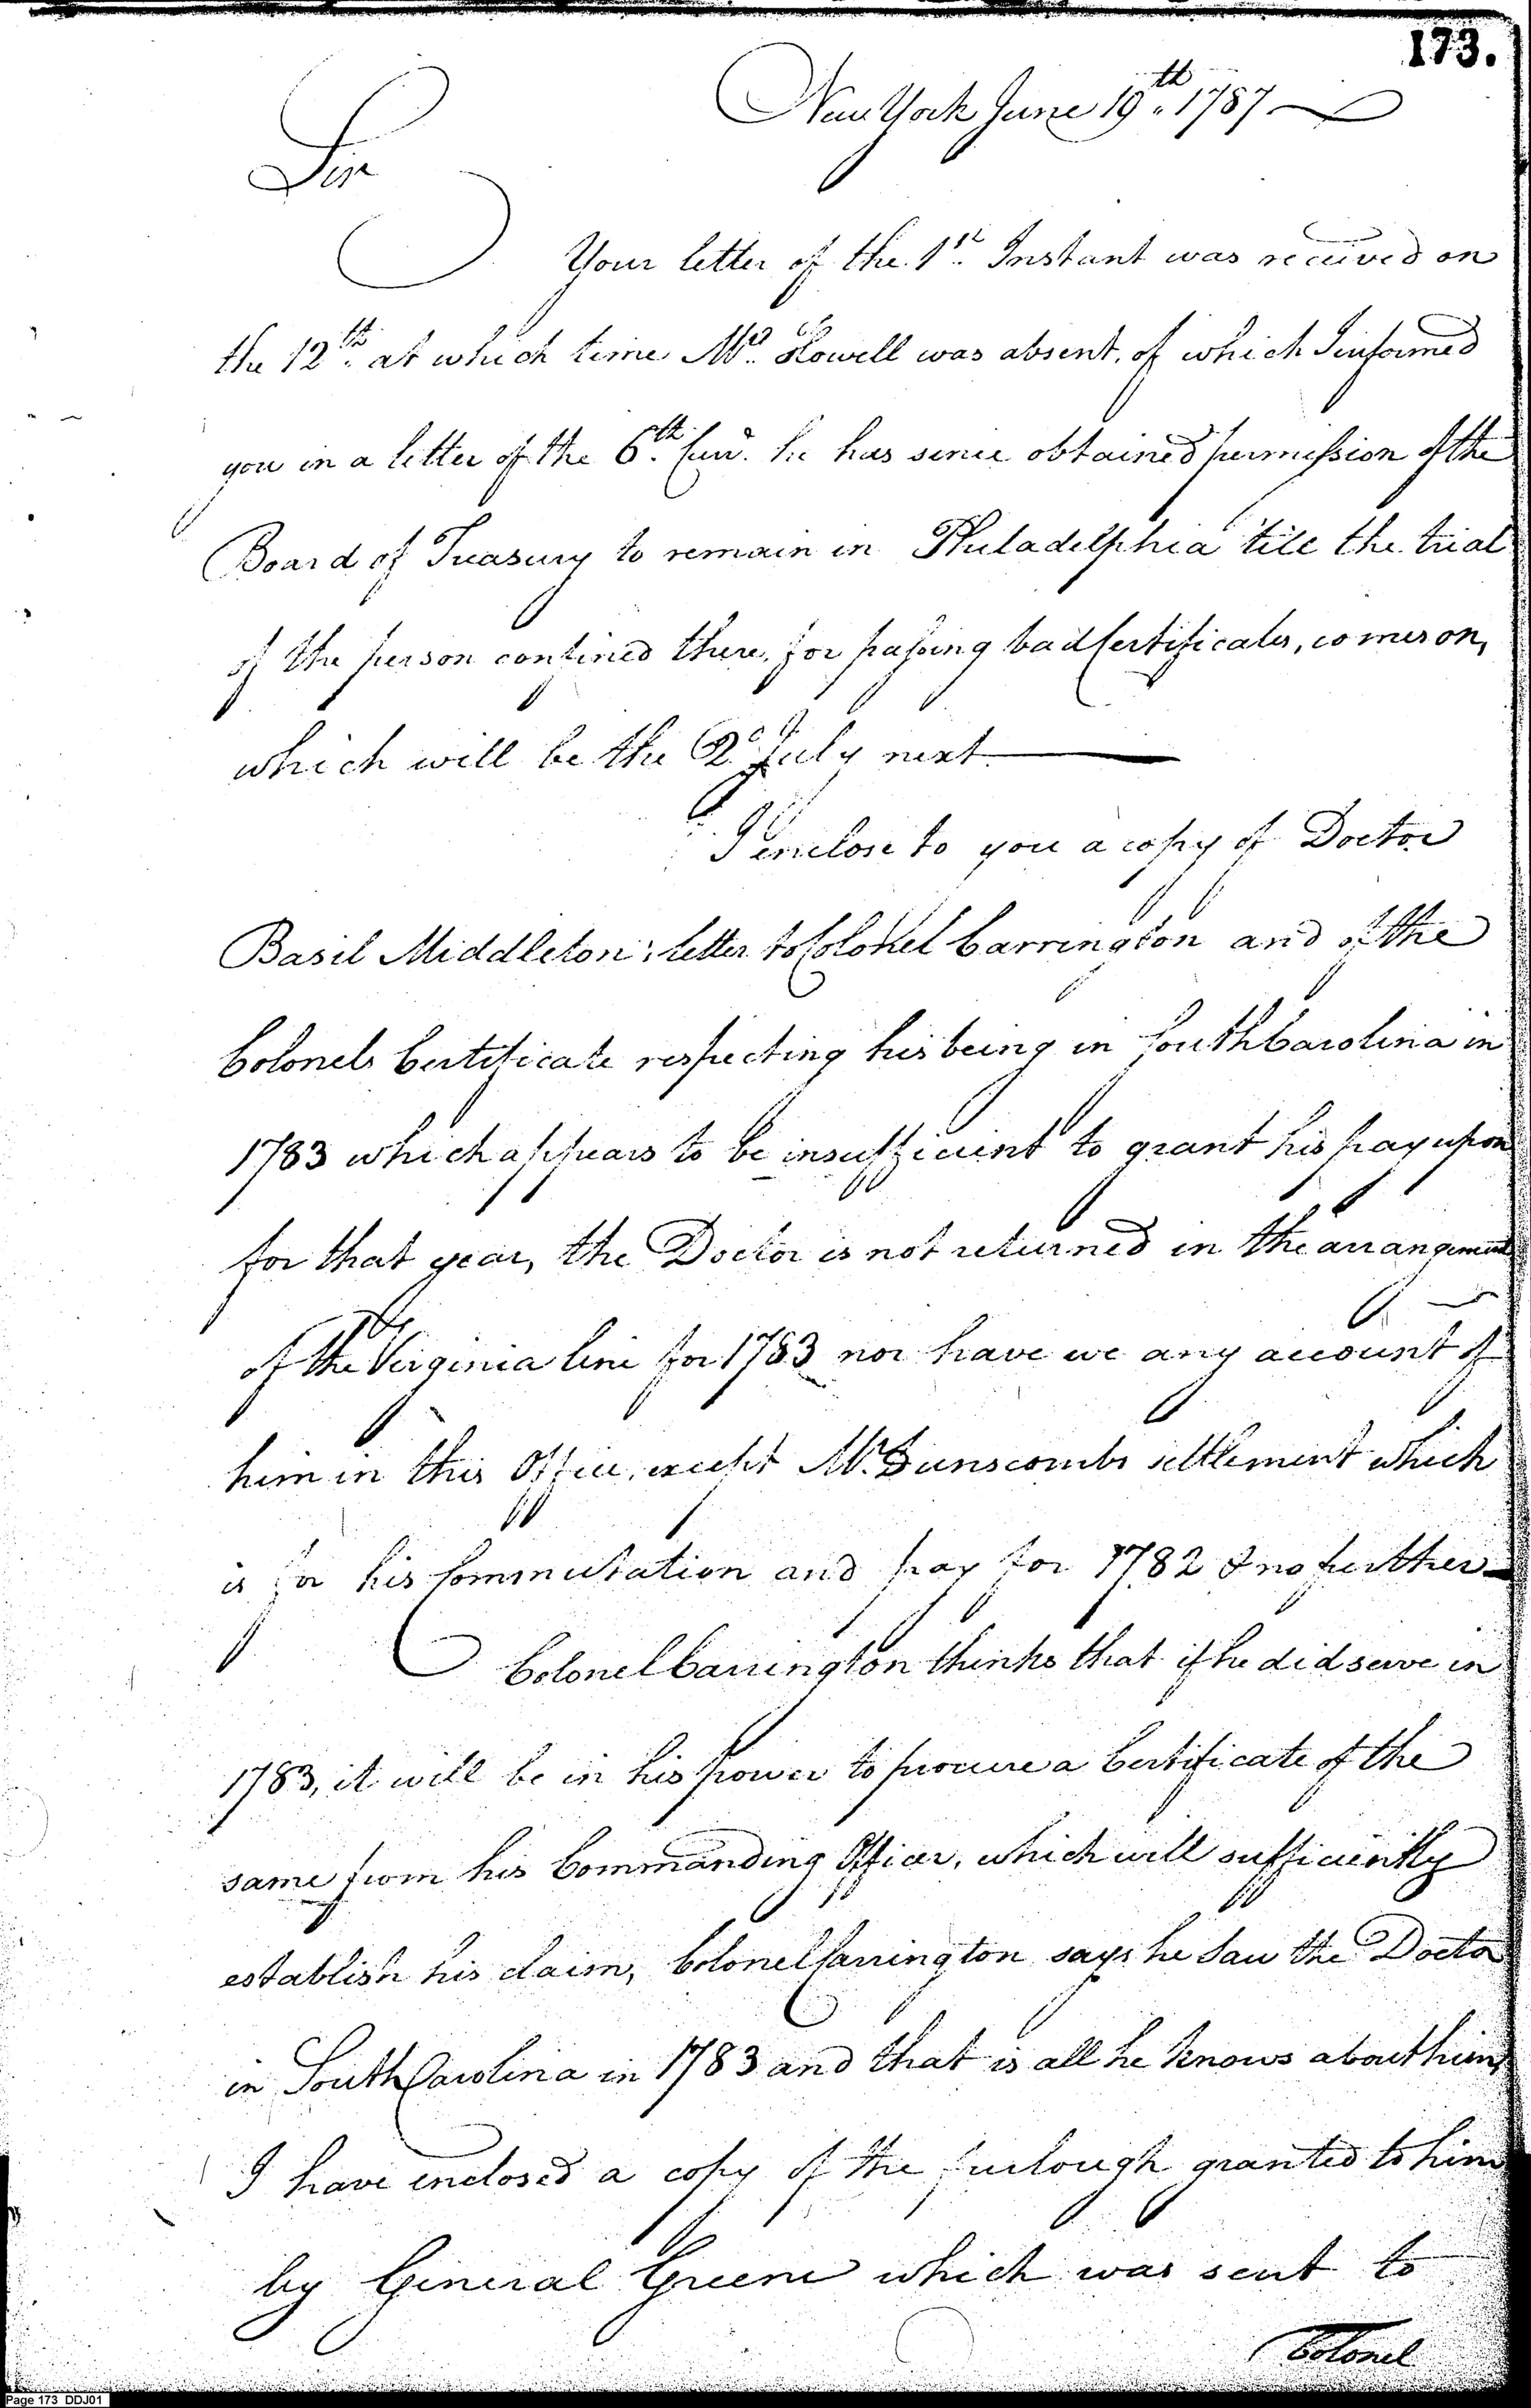 173.
New York June 19th. 1787
Sir
Your letter of the 1st. Instant was received on
the 12th. at which time Mr. Howell was absent, of which I informed
you in a letter of the 6th. Curt. he has since obtained permission of the
Board of Treasury to remain in Philadelphia 'till the trial
of the person confined there, for passing bad Certificates, comes on,
which will be the 2d July next.
I enclose to you a copy of Doctor
Basil Middleton's letter to Colonel Carrington and of the
Colonels Certificate respecting his being in South Carolina in
1783 which appears to be insufficient to grant his pay upon
for that year, the Doctor is not returned in the arrangement
of the Virginia line for 1783 nor have we any account of
him in this Office, except Mr. Dunscombs settlement which
is for his Commutation and pay for 1782 & no further
Colonel Carrington thinks that if he did serve in
1783, it will be in his power to procure a Certificate of the
same from his Commanding Officer, which will sufficiently
establish his claim, Colonel Carrington says he saw the Doctor
in South Carolina in 1783 and that is all he knows about him,
I have enclosed a copy of the furlough granted to him
by General Greene which was sent to
Colonel
Page 173 DDJ01